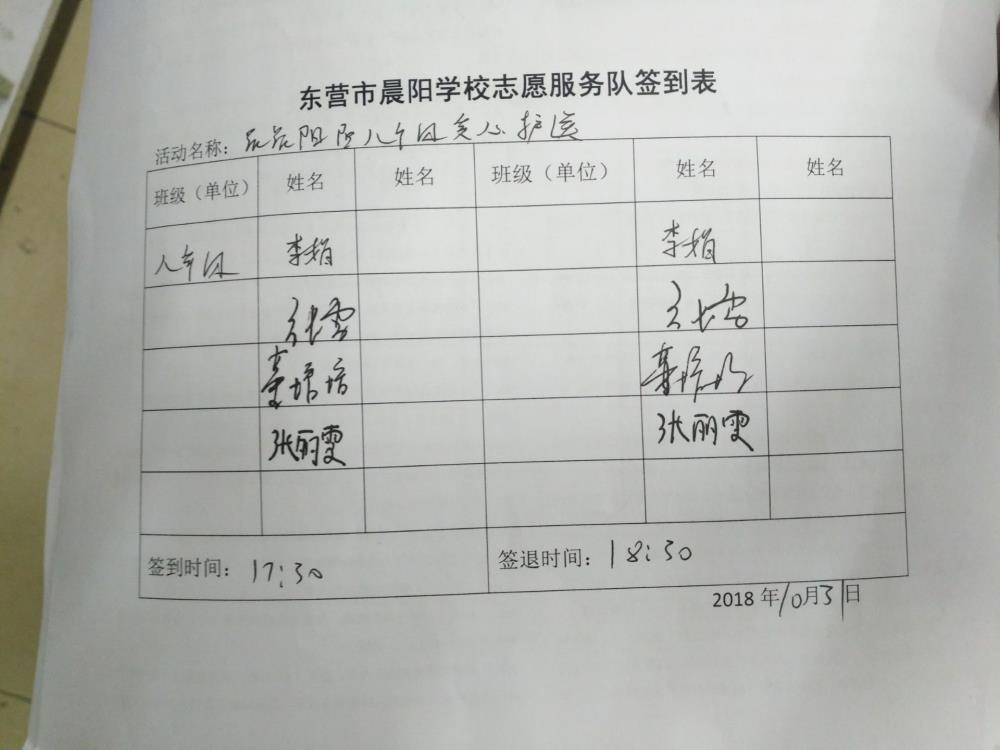 东营市晨阳学校志愿服务队签到表
活动名称：晨阳 八年级爱心护送
班级（单位） 姓名 姓名 班级（单位） 姓名 姓名
八年级 李娟 李娟
张雪 张雪
董培培 董培培
张丽雯 张丽雯
签到时间：17:30 签退时间：18:30
2018年10月31日